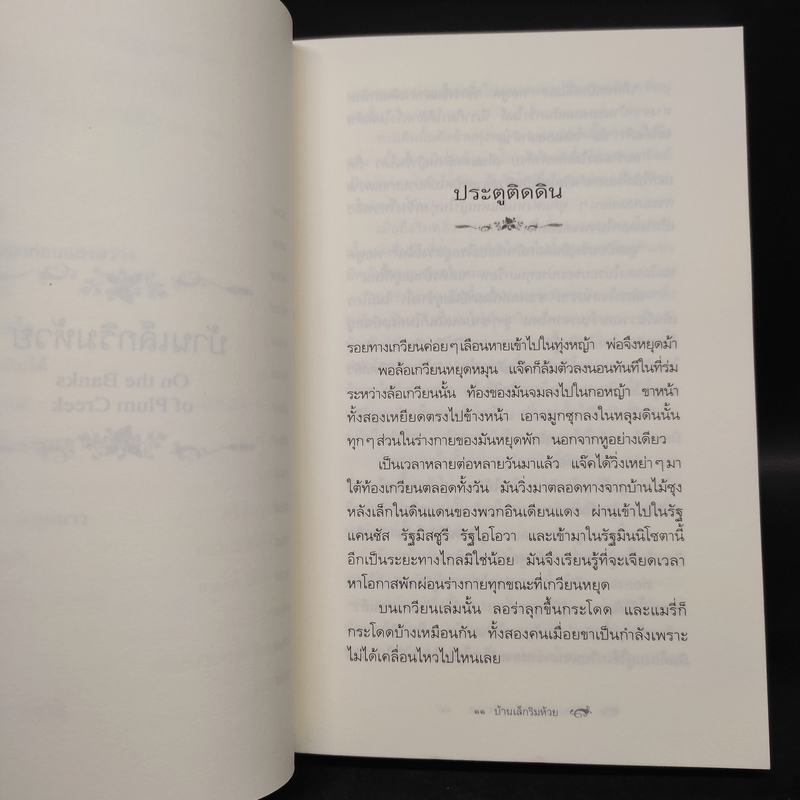 ประตูติดดิน
รอยทางเกวียนค่อยๆเลือนหายเข้าไปในทุ่งหญ้า พ่อจึงหยุดม้า
พอล้อเกวียนหยุดหมุน แจ๊คก็ล้มตัวลงนอนทันทีในที่ร่ม
ระหว่างล้อเกวียนนั้น ท้องของมันจมลงไปในกอหญ้า ขาหน้า
ทั้งสองเหยียดตรงไปข้างหน้า เอาจมูกซุกลงในหลุมดินนั้น
ทุกๆส่วนในร่างกายของมันหยุดพัก นอกจากหูอย่างเดียว
เป็นเวลาหลายต่อหลายวันมาแล้ว แจ๊คได้วิ่งเหย่าๆมา
ใต้ท้องเกวียนตลอดทั้งวัน มันวิ่งมาตลอดทางจากบ้านไม้ซุง
หลังเล็กในดินแดนของพวกอินเดียนแดง ผ่านเข้าไปในรัฐ
แคนซัส รัฐมิสซูรี รัฐไอโอวา และเข้ามาในรัฐมินนิโซตานี้
อีกเป็นระยะทางไกลมิใช่น้อย มันจึงเรียนรู้ที่จะเจียดเวลา
หาโอกาสพักผ่อนร่างกายทุกขณะที่เกวียนหยุด
บนเกวียนเล่มนั้น ลอร่าลุกขึ้นกระโดด และแมรี่ก็
กระโดดบ้างเหมือนกัน ทั้งสองคนเมื่อยขาเป็นกำลังเพราะ
ไม่ได้เคลื่อนไหวไปไหนเลย
๑๑ บ้านเล็กริมห้วย
บ้านเล็กริมห้วย
On the Banks
of Plum Creek